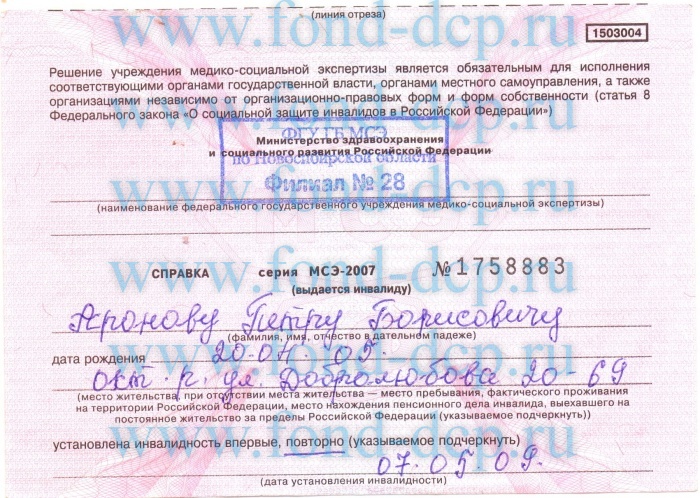 www.fond-dcp.ru
(линия отреза)
1503004
Решение учреждения медико-социальной экспертизы является обязательным для исполнения
соответствующими органами государственной власти, органами местного самоуправления, а также
организациями независимо от организационно-правовых форм и форм собственности (статья 8
Федерального закона «О социальной защите инвалидов в Российской Федерации»)
www.fond-dcp.ru
ФГУ ГБ МСЭ
Министерство здравоохранения
и социального развития Российской Федерации
по Новосибирской области
Филиал № 28
www.fond-dcp.ru
(наименование федерального государственного учреждения медико-социальной экспертизы)
www.fond-dcp.ru
СПРАВКА серия МСЭ-2007 №1758883
(выдается инвалиду)
Аронову Петру Борисовичу
(фамилия, имя, отчество в дательном падеже)
www.fond-dcp.ru
дата рождения 20.04.05.
окт. р. ул. Добролюбова 20-69
(место жительства, при отсутствии места жительства — место пребывания, фактического проживания
на территории Российской Федерации, место нахождения пенсионного дела инвалида, выехавшего на
постоянное жительство за пределы Российской Федерации (указываемое подчеркнуть))
www.fond-dcp.ru
установлена инвалидность впервые, повторно (указываемое подчеркнуть)
07.05.09.
(дата установления инвалидности)